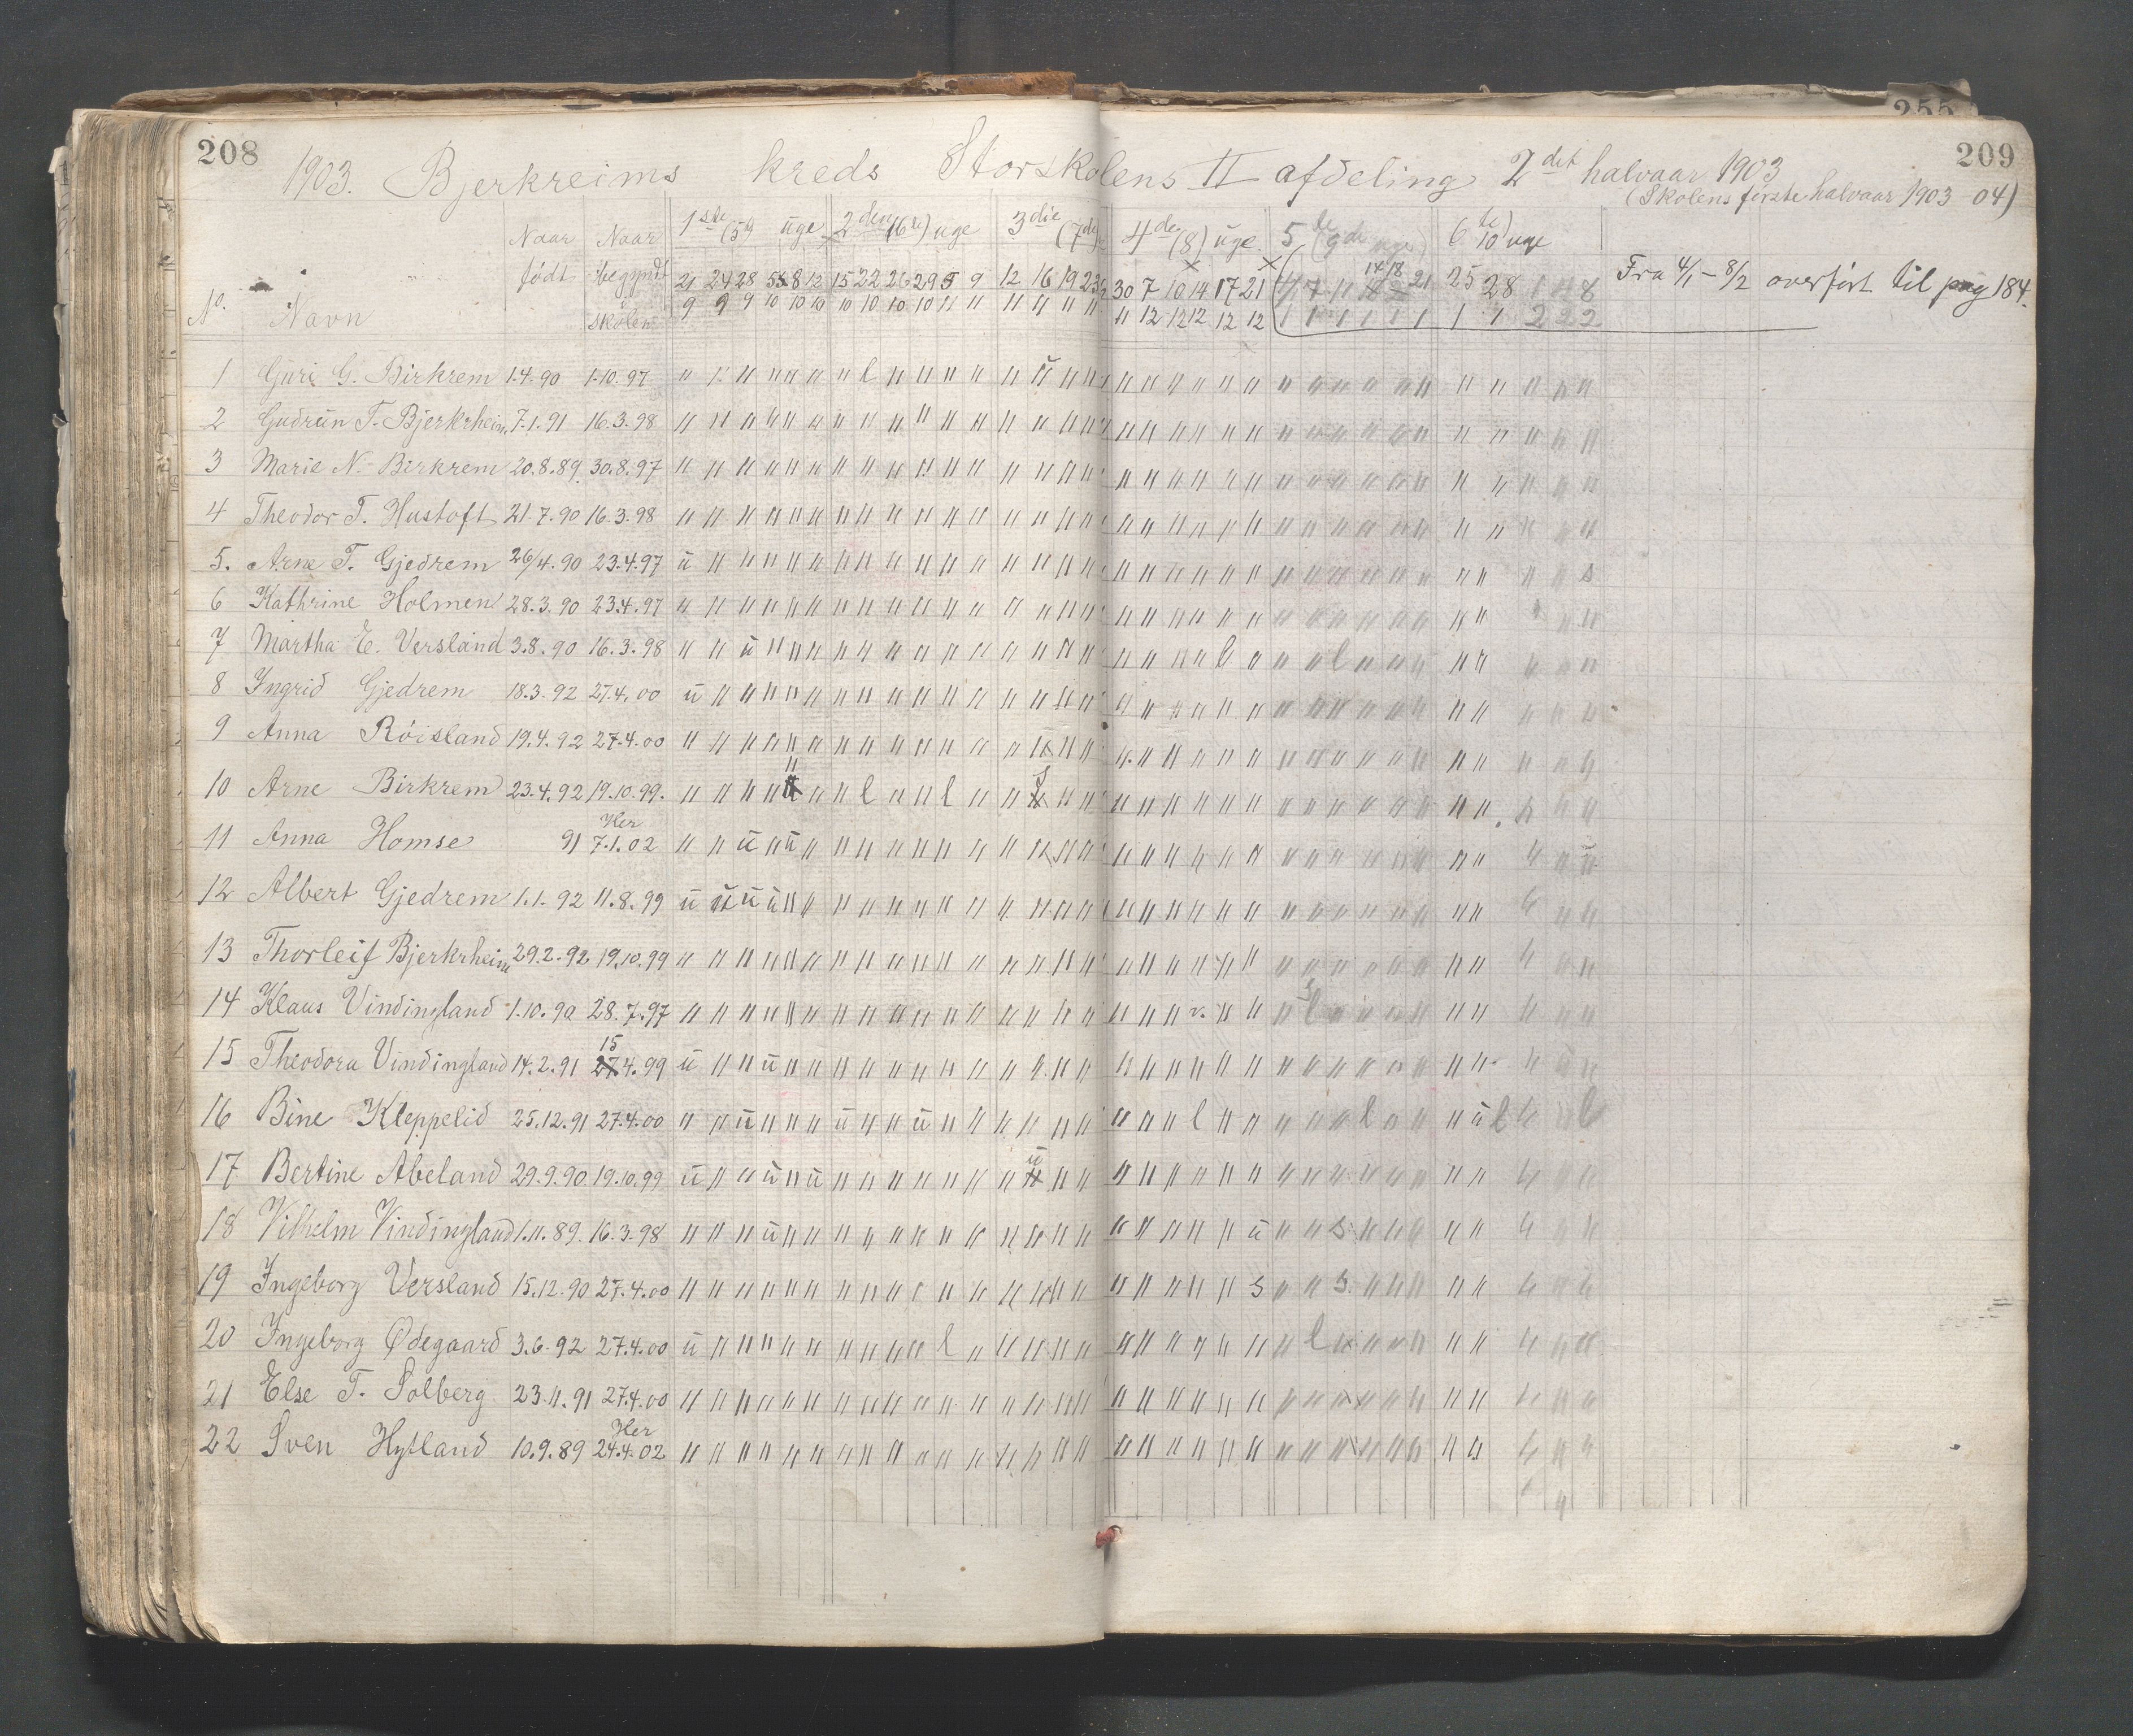 208
209
255
1903. Bjerkreims kreds Storskolens II afdeling 2det halvaar 1903
(Skolens første halvaar 1903-04)
1ste (5te) uge 2den (6te) uge 3die (7de) 4de (8) uge 5te (9de uge) 6te 10 uge
No. Navn Naar født Naar begyndt skolen
21 24 28 5 8 12 15 22 26 29 5 9 12 16 19 23 30 7 10 14 17 21 7 11 14 18 21 25 28 1 4 8
9 9 9 10 10 10 10 10 10 10 11 11 11 11 11 11 11 12 12 12 12 12 1 1 1 1 1 1 1 1 2 2 2
Fra 4/1 - 8/2 overført til pag 184.
1 Guri G. Birkrem 1.4.90 1.10.97
2 Gudrun T. Bjerkrheim 7.1.91 16.3.98
3 Marie N. Birkrem 20.8.89 30.8.97
4 Theodor T. Hustoft 21.7.90 16.3.98
5. Arne T. Gjedrem 26/4.90 23.4.97
6 Kathrine Holmen 28.3.90 23.4.97
7 Martha E. Versland 3.8.90 16.3.98
8 Ingrid Gjedrem 18.3.92 27.4.00
9 Anna Röisland 19.4.92 27.4.00
10 Arne Birkrem 23.4.92 19.10.99.
11 Anna Homse 91 Her 7.1.02
12 Albert Gjedrem 1.1.92 11.8.99
13 Thorleif Bjerkrheim 29.2.92 19.10.99
14 Klaus Vindingland 1.10.90 28.7.97
15 Theodora Vindingland 14.2.91 15 27.4.99
16 Bine Kleppelid 25.12.91 27.4.00
17 Bertine Abeland 29.9.90 19.10.99
18 Vilhelm Vindingland 1.11.89. 16.3.98
19 Ingeborg Versland 15.12.90 27.4.00
20 Ingeborg Ødegaard 3.6.92 27.4.00
21 Else T. Solberg 23.11.91 27.4.00
22 Sven Hytland 10.9.89 Her 24.4.02